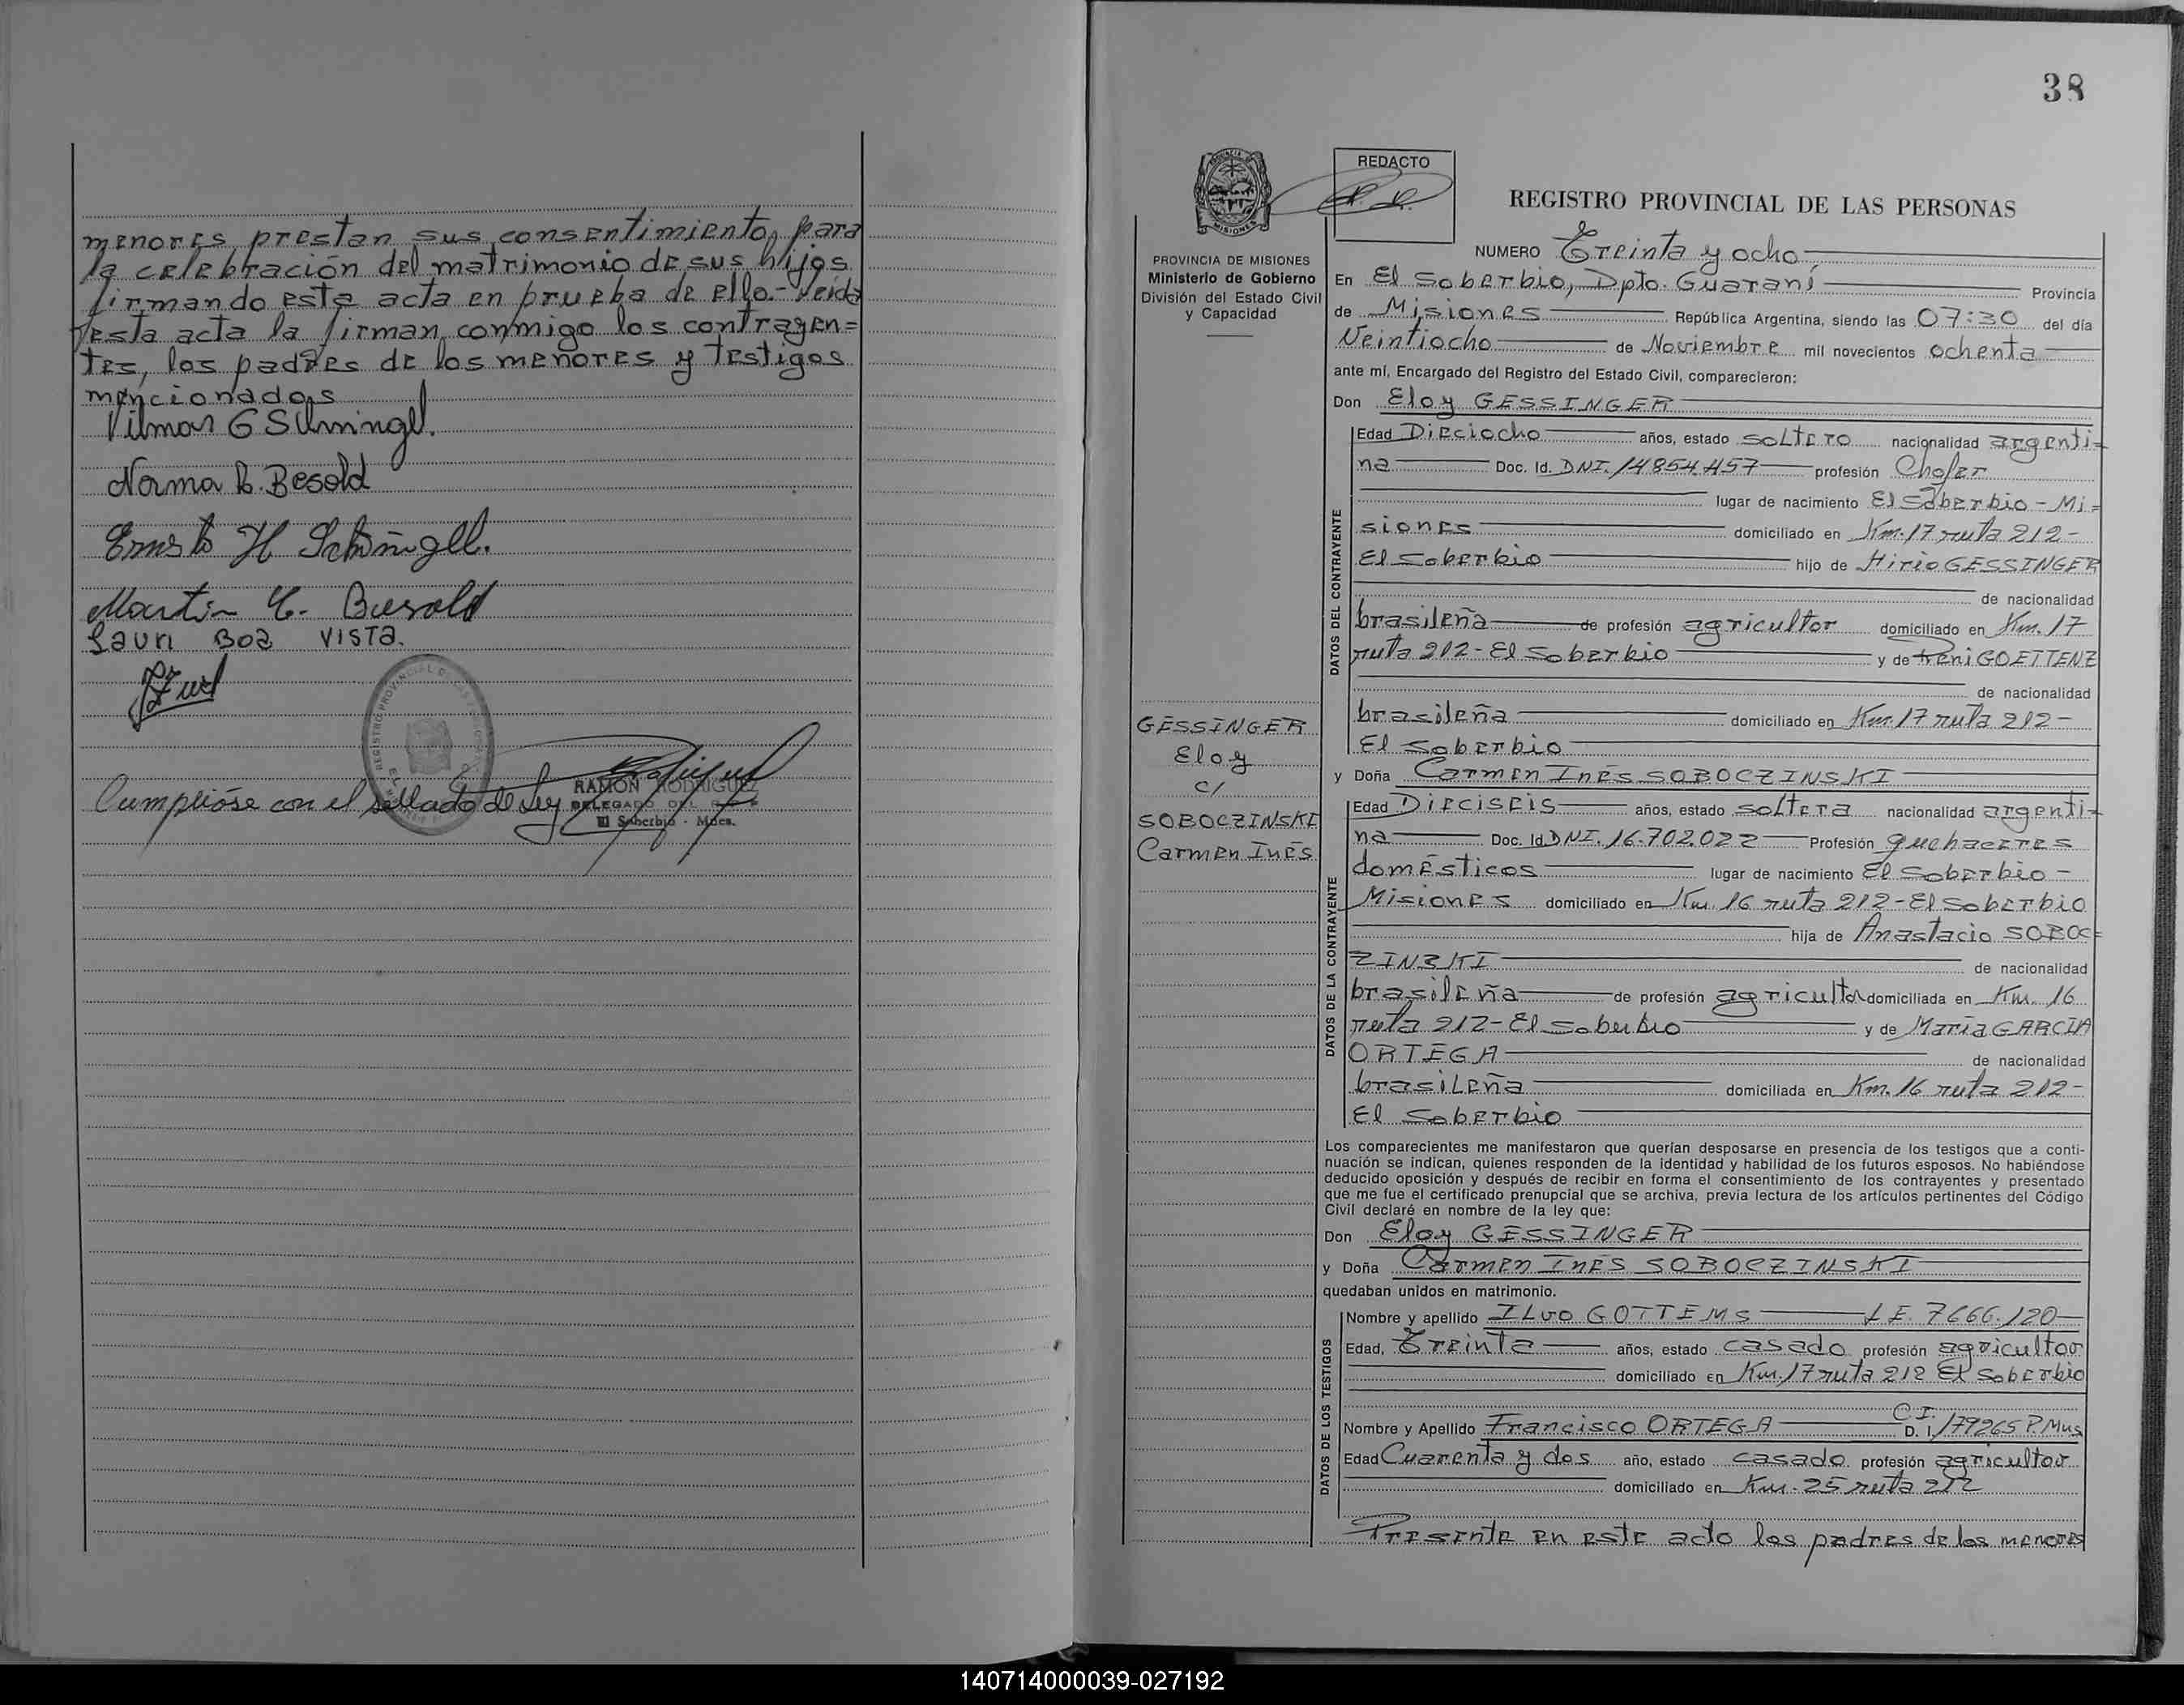 menores, prestan sus consentimiento, para
la celebración del matrimonio de sus hijos
firmando esta acta en prueba de ello.- Leida
esta acta la firman conmigo los contrayen=
tes, los padres de los menores y testigos
mencionados
Vilmar G
Norma B. Besold
Ernesto H
Martin Besold
Lauri Boa Vista.
REGISTRO PROVINCIAL DE LAS
Cumplióse con el sellado de Ley
RAMON RODRIGUEZ
DELEGADO DEL
El Soberbio - Mnes.
38
REDACTO
PROVINCIA DE MISIONES
Ministerio de Gobierno
División del Estado Civil
y Capacidad
GESSINGER
Eloy
c/
SOBOCZINSKI
Carmen Inés
REGISTRO PROVINCIAL DE LAS PERSONAS
NUMERO Treinta y ocho
En El Soberbio, Dpto. Guaraní Provincia
de Misiones República Argentina, siendo las 07:30 del día
Veintiocho de Noviembre mil novecientos ochenta
ante mí, Encargado del Registro del Estado Civil, comparecieron:
Don Eloy GESSINGER
DATOS DEL CONTRAYENTE
Edad Dieciocho años, estado soltero nacionalidad argenti=
na Doc. Id. DNI. 14854.457 profesión Chofer
lugar de nacimiento El Soberbio - Mi=
siones domiciliado en Km. 17 ruta 212-
El Soberbio hijo de Hirio GESSINGER
de nacionalidad
brasileña de profesión agricultor domiciliado en Km. 17
ruta 212 - El Soberbio y de Reni GOETTENZ
de nacionalidad
brasileña domiciliado en Km. 17 ruta 212-
El Soberbio
y Doña Carmen Inés SOBOCZINSKI
DATOS DE LA CONTRAYENTE
Edad Dieciseis años, estado soltera nacionalidad argenti=
na Doc. Id. DNI. 16.702.022 Profesión quehaceres
domésticos lugar de nacimiento El Soberbio -
Misiones domiciliado en Km. 16 ruta 212 - El Soberbio
hija de Anastacio SOBOC=
ZINSKI de nacionalidad
brasileña de profesión agricultor domiciliada en Km. 16
ruta 212 - El Soberbio y de María GARCIA
ORTEGA de nacionalidad
brasileña domiciliada en Km. 16 ruta 212-
El Soberbio
Los comparecientes me manifestaron que querían desposarse en presencia de los testigos que a conti-
nuación se indican, quienes responden de la identidad y habilidad de los futuros esposos. No habiéndose
deducido oposición y después de recibir en forma el consentimiento de los contrayentes y presentado
que me fue el certificado prenupcial que se archiva, previa lectura de los artículos pertinentes del Código
Civil declaré en nombre de la ley que:
Don Eloy GESSINGER
y Doña Carmen Inés SOBOCZINSKI
quedaban unidos en matrimonio.
DATOS DE LOS TESTIGOS
Nombre y apellido ILvo GOTTEMS L.E. 7.666.120
Edad, Treinta años, estado casado profesión agricultor
domiciliado en Km. 17 ruta 212 El Soberbio
Nombre y Apellido Francisco ORTEGA C.I. D. I. 179265 P. Mns
Edad Cuarenta y dos año, estado casado profesión agricultor
domiciliado en Km. 25 ruta 212
Presente en este acto los padres de los menores
140714000039-027192